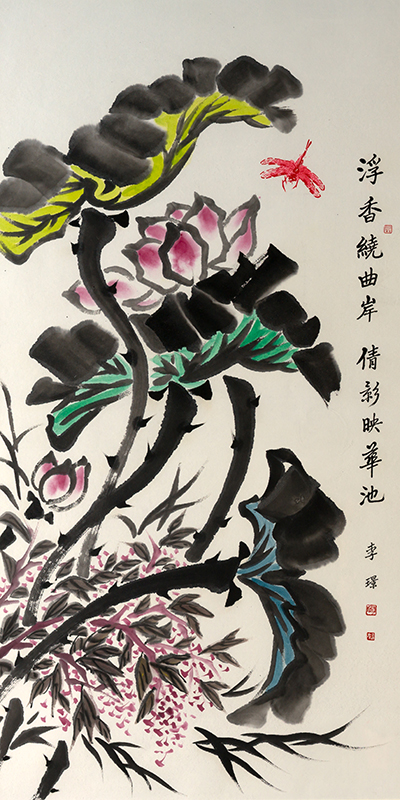 浮香繞曲岸 倩影映華池
李璟